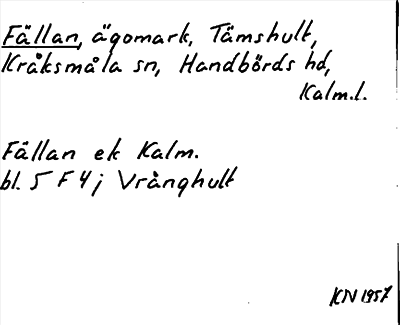 Fällan, ägomark, Tämshult,
Kråksmåla sn, Handbörds hd,
Kalm.l.
Fällan ek Kalm.
bl. 5 F 4 j Vrånghult
KN 1957